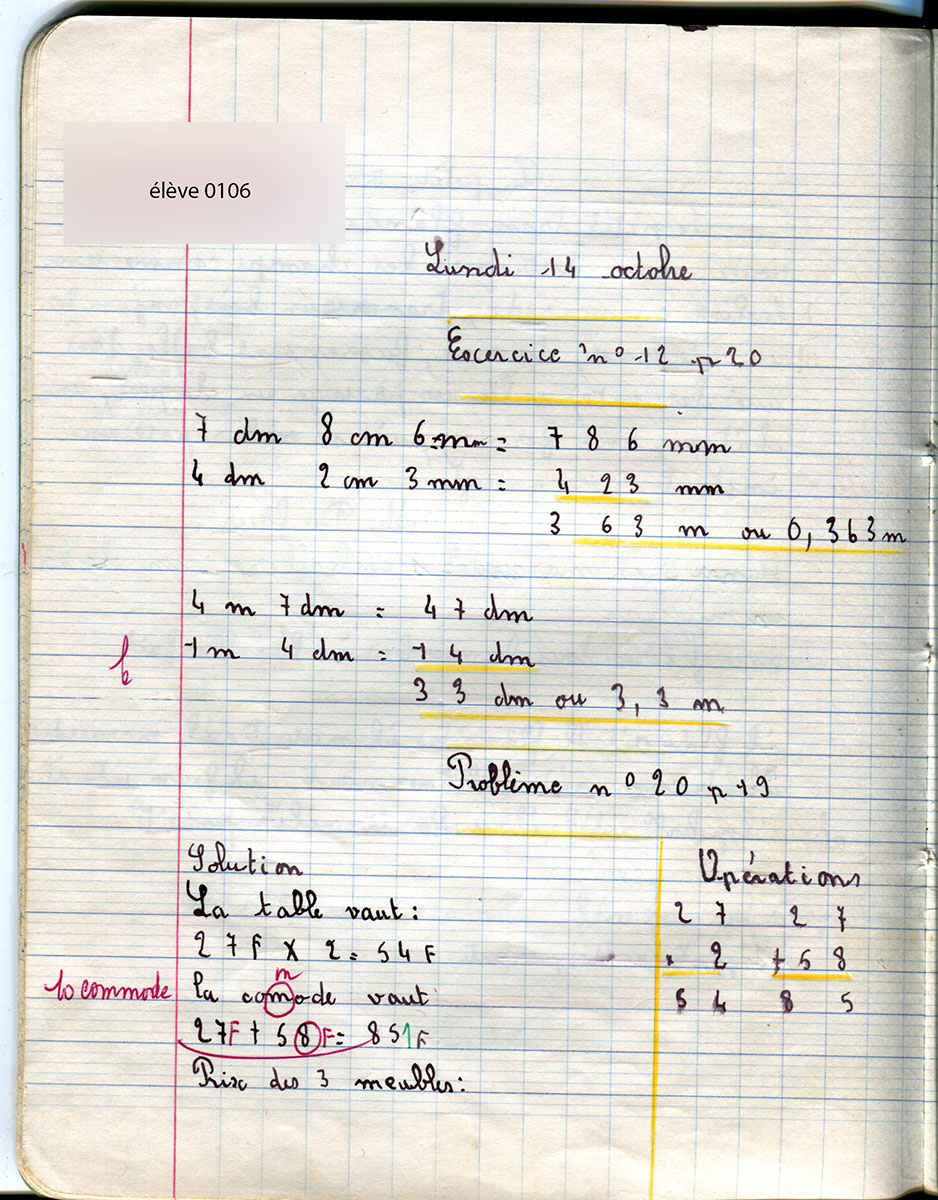 élève 0106
Lundi 14 octobre
Exercice n° 12 p 20
7 dm 8 cm 6 mm = 7 8 6 mm
4 dm 2 cm 3 mm = 4 2 3 mm
3 6 3 m ou 0,363 m
4 m 7 dm = 4 7 dm
1 m 4 dm = 1 4 dm
3 3 dm ou 3,3 m
Problème n° 20 p 19
Solution
La table vaut :
27 F x 2 = 54 F
m
10 commode
la comode vaut
27F + 58F = 851F
Prix des 3 meubles :
Opérations
2 7 2 7
x 2 + 5 8
5 4 8 5